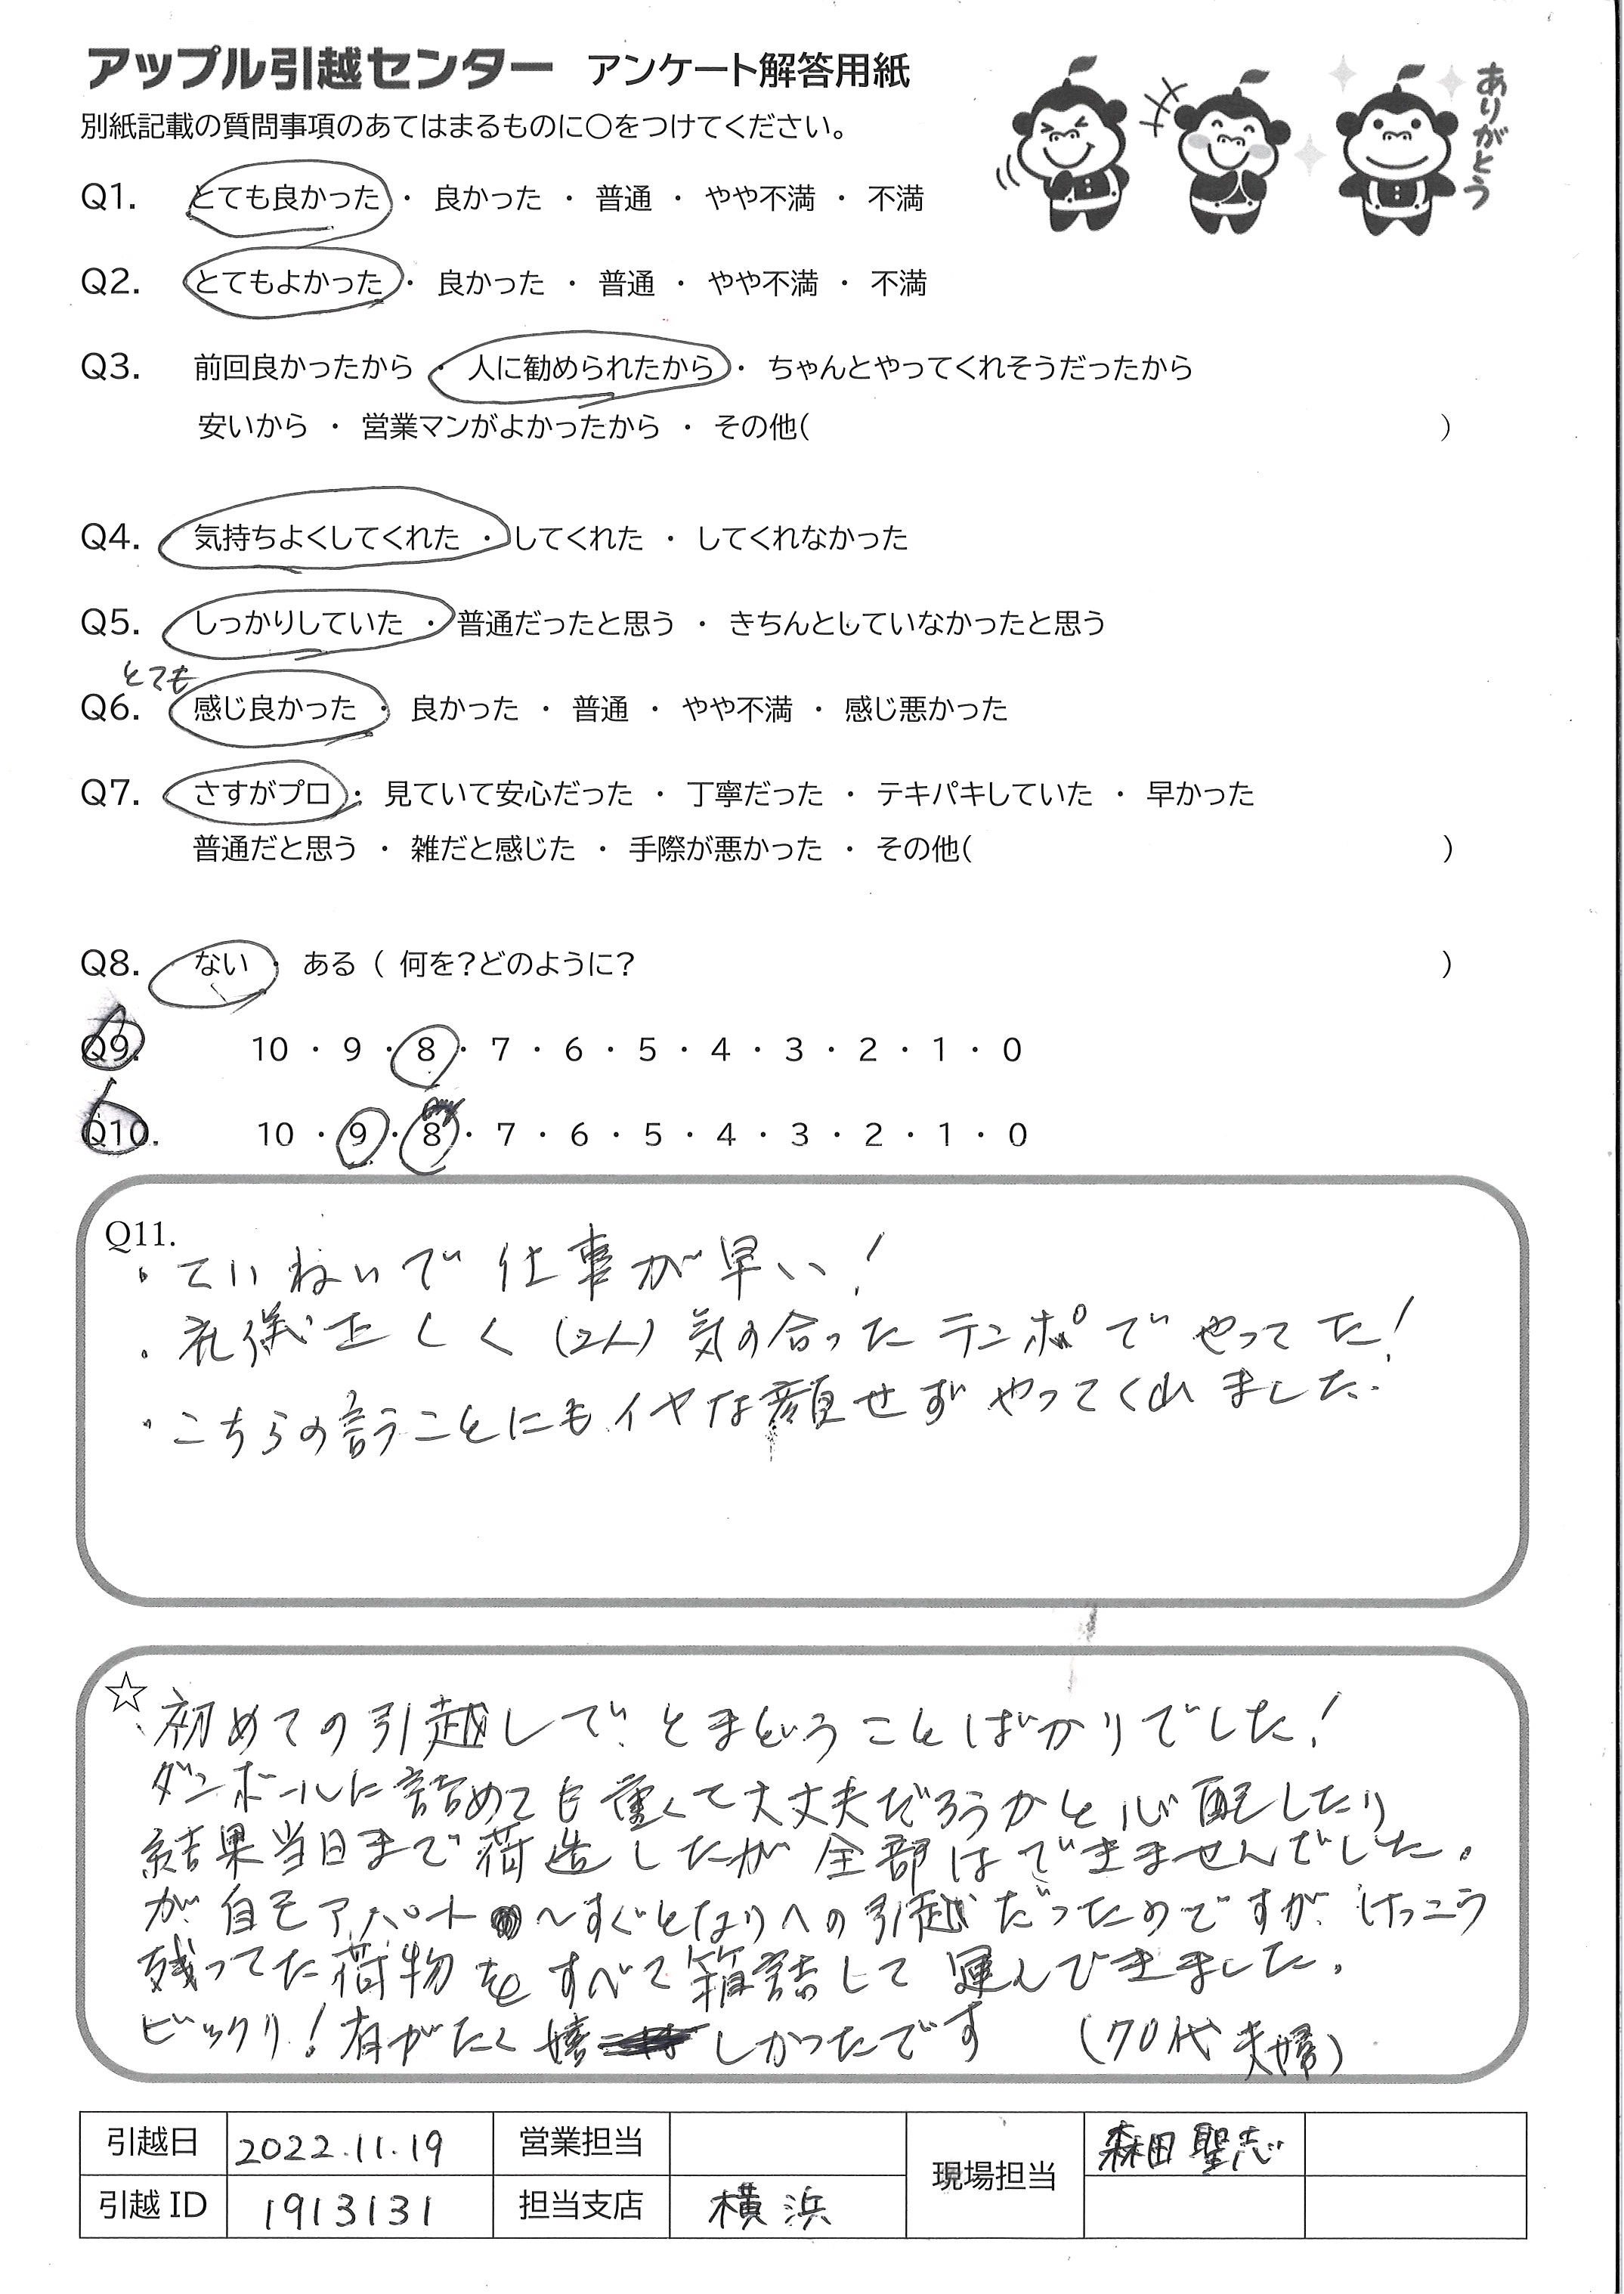 アップル引越センター アンケート解答用紙
ありがとう
別紙記載の質問事項のあてはまるものに〇をつけてください。
Q1. とても良かった ・ 良かった ・ 普通 ・ やや不満 ・ 不満
Q2. とてもよかった ・ 良かった ・ 普通 ・ やや不満 ・ 不満
Q3. 前回良かったから ・ 人に勧められたから ・ ちゃんとやってくれそうだったから
安いから ・ 営業マンがよかったから ・ その他( )
Q4. 気持ちよくしてくれた ・ してくれた ・ してくれなかった
Q5. しっかりしていた ・ 普通だったと思う ・ きちんとしていなかったと思う
とても
Q6. 感じ良かった ・ 良かった ・ 普通 ・ やや不満 ・ 感じ悪かった
Q7. さすがプロ ・ 見ていて安心だった ・ 丁寧だった ・ テキパキしていた ・ 早かった
普通だと思う ・ 雑だと感じた ・ 手際が悪かった ・ その他( )
Q8. ない ・ ある ( 何を?どのように? )
Q9. 10 ・ 9 ・ 8 ・ 7 ・ 6 ・ 5 ・ 4 ・ 3 ・ 2 ・ 1 ・ 0
Q10. 10 ・ 9 ・ 8 ・ 7 ・ 6 ・ 5 ・ 4 ・ 3 ・ 2 ・ 1 ・ 0
Q11.
・ていねいで 仕事が早い!
・礼儀正しく(2人)気の合ったテンポでやってた!
・こちらの言うことにもイヤな顔せずやってくれました.
☆
初めての引越しで、とまどうことばかりでした!
ダンボールに詰めても重くて大丈夫だろうかと心配したり
結果当日まで荷造したが全部はできませんでした。
が自宅アパート〜すぐとなりへの引越だったのですが、けっこう
残ってた荷物をすべて箱詰して運んできました。
ビックリ!有がたく嬉しかったです (70代夫婦)
引越日 2022.11.19 営業担当 現場担当 森田聖志
引越 ID 1913131 担当支店 横浜